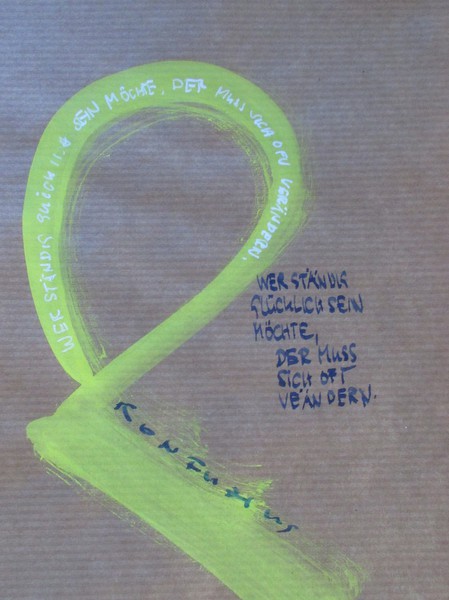 WER STÄNDIG GLÜCKLICH SEIN MÖCHTE, DER MUSS SICH OFT VERÄNDERN.
WER STÄNDIG
GLÜCKLICH SEIN
MÖCHTE,
DER MUSS
SICH OFT
VEÄNDERN.
KONFUZIUS